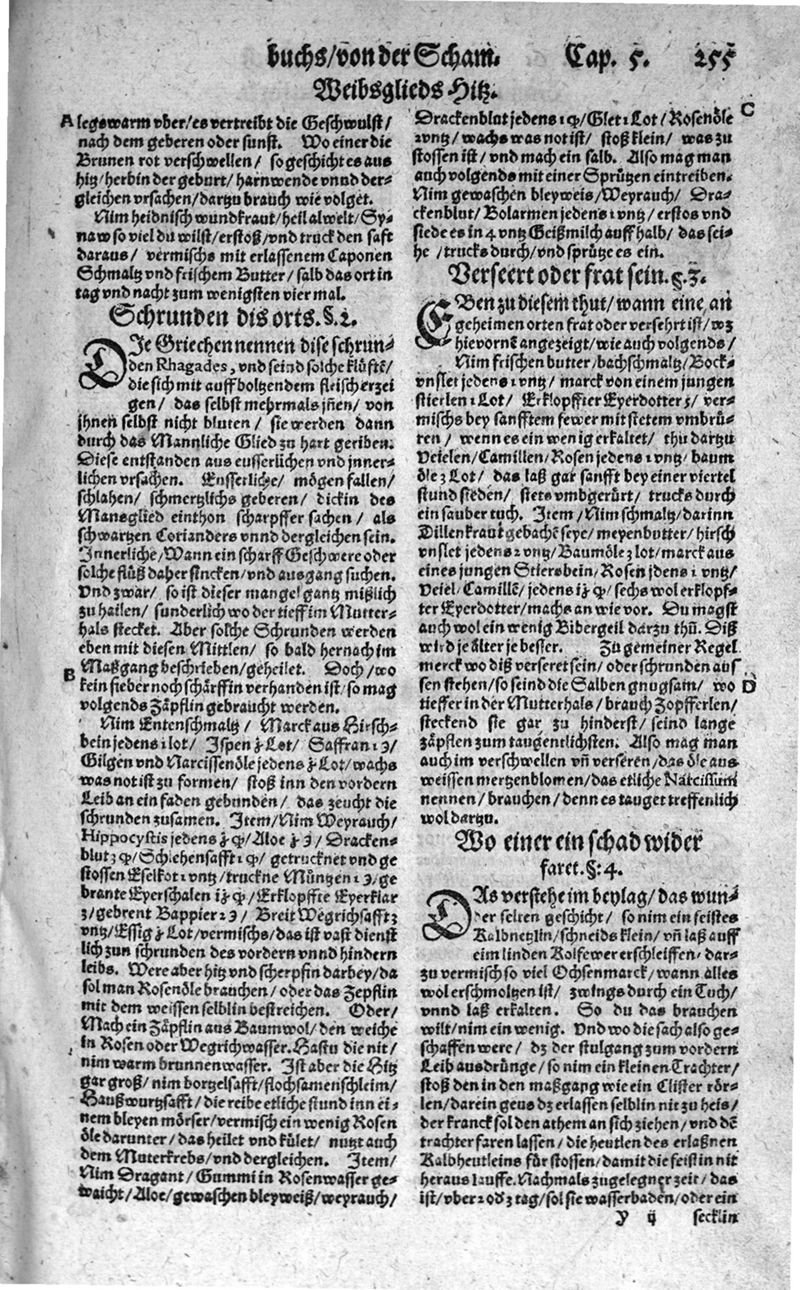 buchs/von der Scham. Cap. 5. 255
Weibsglieds Hitz.
A legswarm vber/es vertreibt die Geschwulst/
nach dem geberen oder sunst. Wo einer die
Brunen rot verschwellen/ so geschicht es aus
hitz/herbin der geburt/harnwende vnnd der-
gleichen vrsachen/darzu brauch wie volget.
Nim heidnisch wundkraut/heil alwelt/Sy-
naw so viel du wilst/erstoß/vnd truck den safft
daraus/ vermischs mit erlassenem Caponen
Schmaltz vnd frischem Butter/salb das ort in
tag vnd nacht zum wenigsten vier mal.
Schrunden dis orts. §. 2.
DIe Griechen nennen dise schrun-
den Rhagades, vnd seind solche klüfte/
die sich mit auff boltzendem fleisch erzei
gen/ das selbst mehrmals jñen/ von
ihnen selbst nicht bluten/ sie werden dann
durch das Mannliche Glied zu hart geriben.
Diese entstanden aus eusserlichen vnd jnner-
lichen vrsachen. Eusserliche/ mögen fallen/
schlahen/ schmertzlichs geberen/ dickin des
Mansglied einthon scharpffer sachen/ als
schwartzen Corianders vnnd dergleichen sein.
Innerliche/Wann ein scharff Geschwere oder
solche flüß daher sincken/vnd ausgang suchen.
Vnd zwar/ so ist dieser mangel gantz mißlich
zu hailen/ sunderlich wo der tieff im Mutter-
hals stecket. Aber solche Schrunden werden
eben mit diesen Mittlen/ so bald hernach im
Maßgang beschrieben/geheilet. Doch/wo
B kein fieber noch schärffin verhanden ist/so mag
volgends Zäpflin gebraucht werden.
Nim Entenschmaltz/ Marck aus Hirsch-
bein jedens 1 lot/ Ispen ʒ Lot/ Saffran 1 ʒ/
Gilgen vnd Narcissenöle jedens ʒ Lot/wachs
was not ist zu formen/ stoß inn den vordern
Leib an ein faden gebunden/ das zeucht die
schrunden zusamen. Item/Nim Weyrauch/
Hippocystis jedens ʒ qͦ/Aloe ʒ ʒ/Dracken-
blut ʒ qͦ/Schlehensafft 1 qͦ/ getrucknet vnd ge
stossen Eselkot 1 vntz/truckne Müntzen 1 ʒ/ge
brante Eyerschalen iʒ qͦ/Erklopffte Eyerklar
ʒ/gebrent Bappier 2 ʒ/ Breit Wegrichsafft ʒ
vntz/Essig ʒ Lot/vermischs/das ist vast dienst
lich zun schrunden des vordern vnnd hindern
leibs. Were aber hitz vnd scherpfin darbey/da
sol man Rosenöle brauchen/oder das Zepflin
mit dem weissen selblin bestreichen. Oder/
Mach ein Zäpflin aus Baumwol/den weiche
in Rosen oder Wegrichwasser. Hastu die nit/
nim warm brunnenwasser. Ist aber die Hitz
gar groß/ nim borzelsafft/flochsamenschleim/
Haußwurtzsafft/ die reibe etliche stund inn ei-
nem bleyen mörser/vermisch ein wenig Rosen
öle darunter/das heilet vnd kület/ nutzt auch
dem Muterkrebs/vnd dergleichen. Item/
Nim Dragant/ Gummi in Rosenwasser ge-
waicht/Aloe/gewaschen bleyweiß/weyrauch/
Drackenblut jedens 1 qͦ/Glet 1 Lot/Rosenöle C
2 vntz/wachs was not ist/ stoß klein/ was zu
stossen ist/vnd mach ein salb. Also mag man
auch volgends mit einer Sprützen eintreiben.
Nim gewaschen bleyweis/Weyrauch/ Dra-
ckenblut/Bolarmen jedens 1 vntz/erstos vnd
siede es in 4 vntz Geißmilch auff halb/das sei-
he/trucks durch/vnd sprütze es ein.
Verseert oder frat sein. §. 3.
EBen zu diesem thut/wann eine an
geheimen orten frat oder versehrt ist/wz
hievorne angezeigt/wie auch volgends/
Nim frischen butter/bachschmaltz/Bock-
vnslet jedens 1 vntz/ marck von einem jungen
stierlen 1 Lot/ Erklopffter Eyerdotter 3/ ver-
mischs bey sanfftem fewer mit stetem vmbrü-
ren/ wenn es ein wenig erkaltet/ thu dartzu
Veielen/Camillen/Rosen jedens 1 vntz/baum
öle 3 Lot/ das laß gar sanfft bey einer viertel
stund sieden/ stets vmbgerürt/ trucks durch
ein sauber tuch. Item/Nim schmaltz/darinn
Dillenkraut gebachẽ seye/meyenbutter/hirsch
vnslet jedens 1 vntz/Baumöle 2 lot/marck aus
eines jungen Stiersbein/Rosen jdens 1 vntz/
Veiel/Camillẽ/jedens iʒ qͦ/sechs wol erklopf-
ter Eyerdotter/machs an wie vor. Du magst
auch wol ein wenig Bibergeil darzu thũ. Diß
wird je älter je besser. Zu gemeiner Regel
merck wo diß verseret sein/oder schrunden auß
sen stehen/so seind die Salben gnugsam/ wo D
tieffer in der Mutterhals/brauch Zopfferlen/
steckend sie gar zu hinderst/ seind lange
zäpflen zum taugentlichsten. Also mag man
auch im verschwellen vñ verseren/das öle aus
weissen mertzenblomen/das etliche Narcissum
nennen/brauchen/denn es tauget treffenlich
wol darzu.
Wo einer ein schad wider
faret. §: 4.
DAs verstehe im beylag/das wun-
der selten geschicht/ so nim ein feistes
Kalbnetzlin/schneids klein/ vñ laß auff
eim linden Kolfewer erschleiffen/ dar-
zu vermisch so viel Ochsenmarck/wann alles
wol erschmoltzen ist/ zwings durch ein Tuch/
vnnd laß erkalten. So du das brauchen
wilt/nim ein wenig. Vnd wo die sach also ge-
schaffen were/ dz der stulgang zum vordern
Leib ausdrünge/so nim ein kleinen Trachter/
stoß den in den maßgang wie ein Clister rör-
len/darein geus dz erlassen selblin nit zu heis/
der kranck sol den athem an sich ziehen/vnd dẽ
trachter faren lassen/ die heutlen des erlaßnen
Kalbheutleins für stossen/damit die feistin nit
heraus lauffe. Nachmals zu gelegner zeit/das
ist/vber 2 oď 3 tag/sol sie wasserbaden/oder ein
y ij secklin